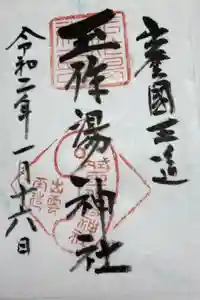 出雲國玉造
玉作湯神社
令和二年一月十六日
出雲